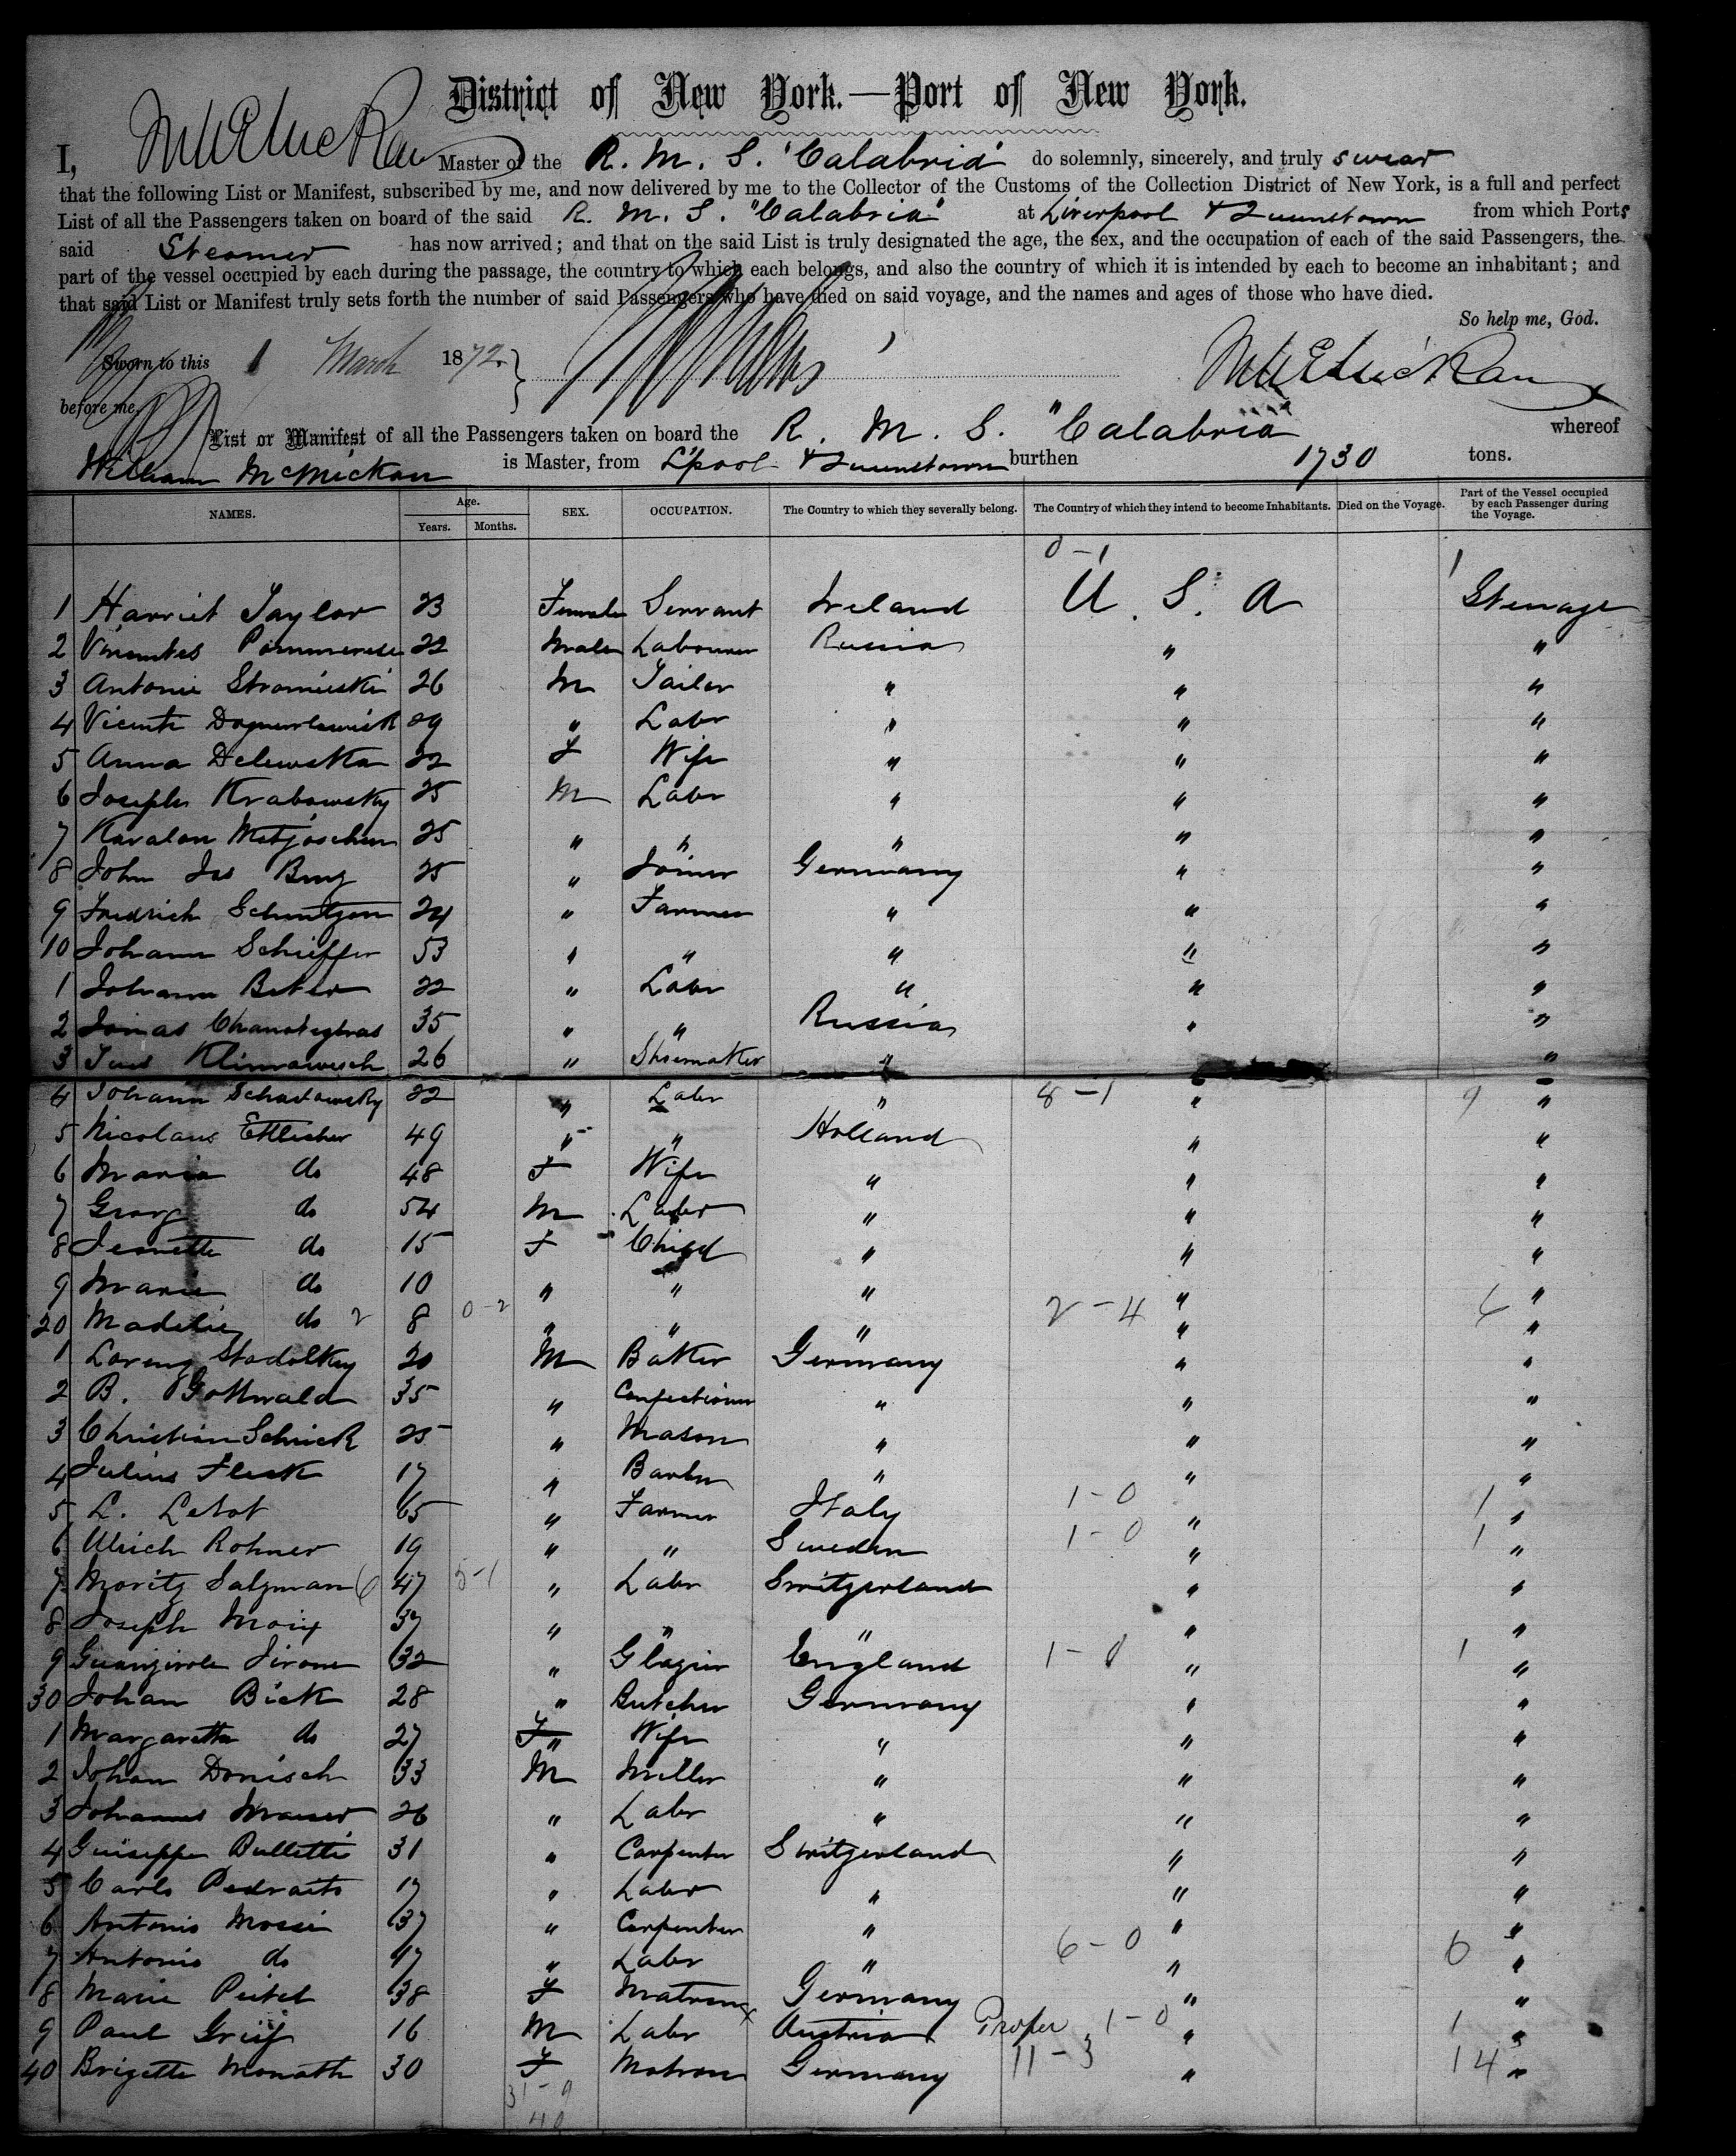 District of New York.—Port of New York.
I, Master of the R. M. S. "Calabria" do solemnly, sincerely, and truly swear
that the following List or Manifest, subscribed by me, and now delivered by me to the Collector of the Customs of the Collection District of New York, is a full and perfect
List of all the Passengers taken on board of the said R. M. S. "Calabria" at Liverpool & Queenstown from which Ports
said Steamer has now arrived; and that on the said List is truly designated the age, the sex, and the occupation of each of the said Passengers, the
part of the vessel occupied by each during the passage, the country to which each belongs, and also the country of which it is intended by each to become an inhabitant; and
that said List or Manifest truly sets forth the number of said Passengers who have died on said voyage, and the names and ages of those who have died.
So help me, God.
Sworn to this 1 March 1872
before me,
List or Manifest of all the Passengers taken on board the R. M. S. "Calabria whereof
William McMickan is Master, from L'pool & Queenstown burthen 1730 tons.
NAMES. Age. Years. Months. SEX. OCCUPATION. The Country to which they severally belong. The Country of which they intend to become Inhabitants. Died on the Voyage. Part of the Vessel occupied by each Passenger during the Voyage.
0-1 1
1 Harriet Taylor 23 Female Servant Ireland U. S. A Steerage
2 22 Male Labourer Russia " "
3 Antonie 26 M Tailor " " "
4 29 " Labr " " "
5 Anna Delewska 22 F Wife " " "
6 Joseph Krabowsky 25 M Labr " " "
7 25 " " " " "
8 John Jas 25 " Joiner Germany " "
9 Fredrich 24 " Farmer " " "
10 Johann Schieffer 53 " " " " "
1 Johann 22 " Labr " " "
2 35 " " Russia " "
3 26 " Shoemaker " " "
4 Johann Schadowsky 22 " Labr " 8-1 " 9 "
5 Nicolaus Ettlicher 49 " " Holland " "
6 Maria do 48 F Wife " " "
7 Georg do 54 M Labr " " "
8 Jeanette do 15 F Child " " "
9 Marie do 10 " " " " "
20 do 2 8 0-2 " " " 2-4 " 6 "
1 20 M Baker Germany " "
2 B. Gottwald 35 " Confectioner " " "
3 Christian Schick 25 " Mason " " "
4 Julius Fleck 17 " Barber " " "
5 L. 65 " Farmer Italy 1-0 " 1 "
6 Ulrich Rohner 19 " " Sweden 1-0 " 1 "
7 Moritz Salzman 6 47 5-1 " Labr Switzerland " "
8 Joseph Moix 37 " " " " "
9 32 " Glazier England 1-0 " 1 "
30 Johan Bick 28 " Butcher Germany " "
1 Margaretta do 27 F Wife " " "
2 Johan Donisch 33 M Miller " " "
3 Johannes 26 " Labr " " "
4 Guiseppe Bulletti 31 " Carpenter Switzerland " "
5 Carlo 17 " Labr " " "
6 Antonio Mossi 37 " Carpenter " " "
7 Antonio do 47 " Labr " 6-0 " 6 "
8 Marie 38 F Matron Germany " "
9 Paul 16 M Labr Austria Proper 1-0 " 1 "
40 Brigette Monath 30 F Matron Germany 11-3 " 14 "
31-9
40